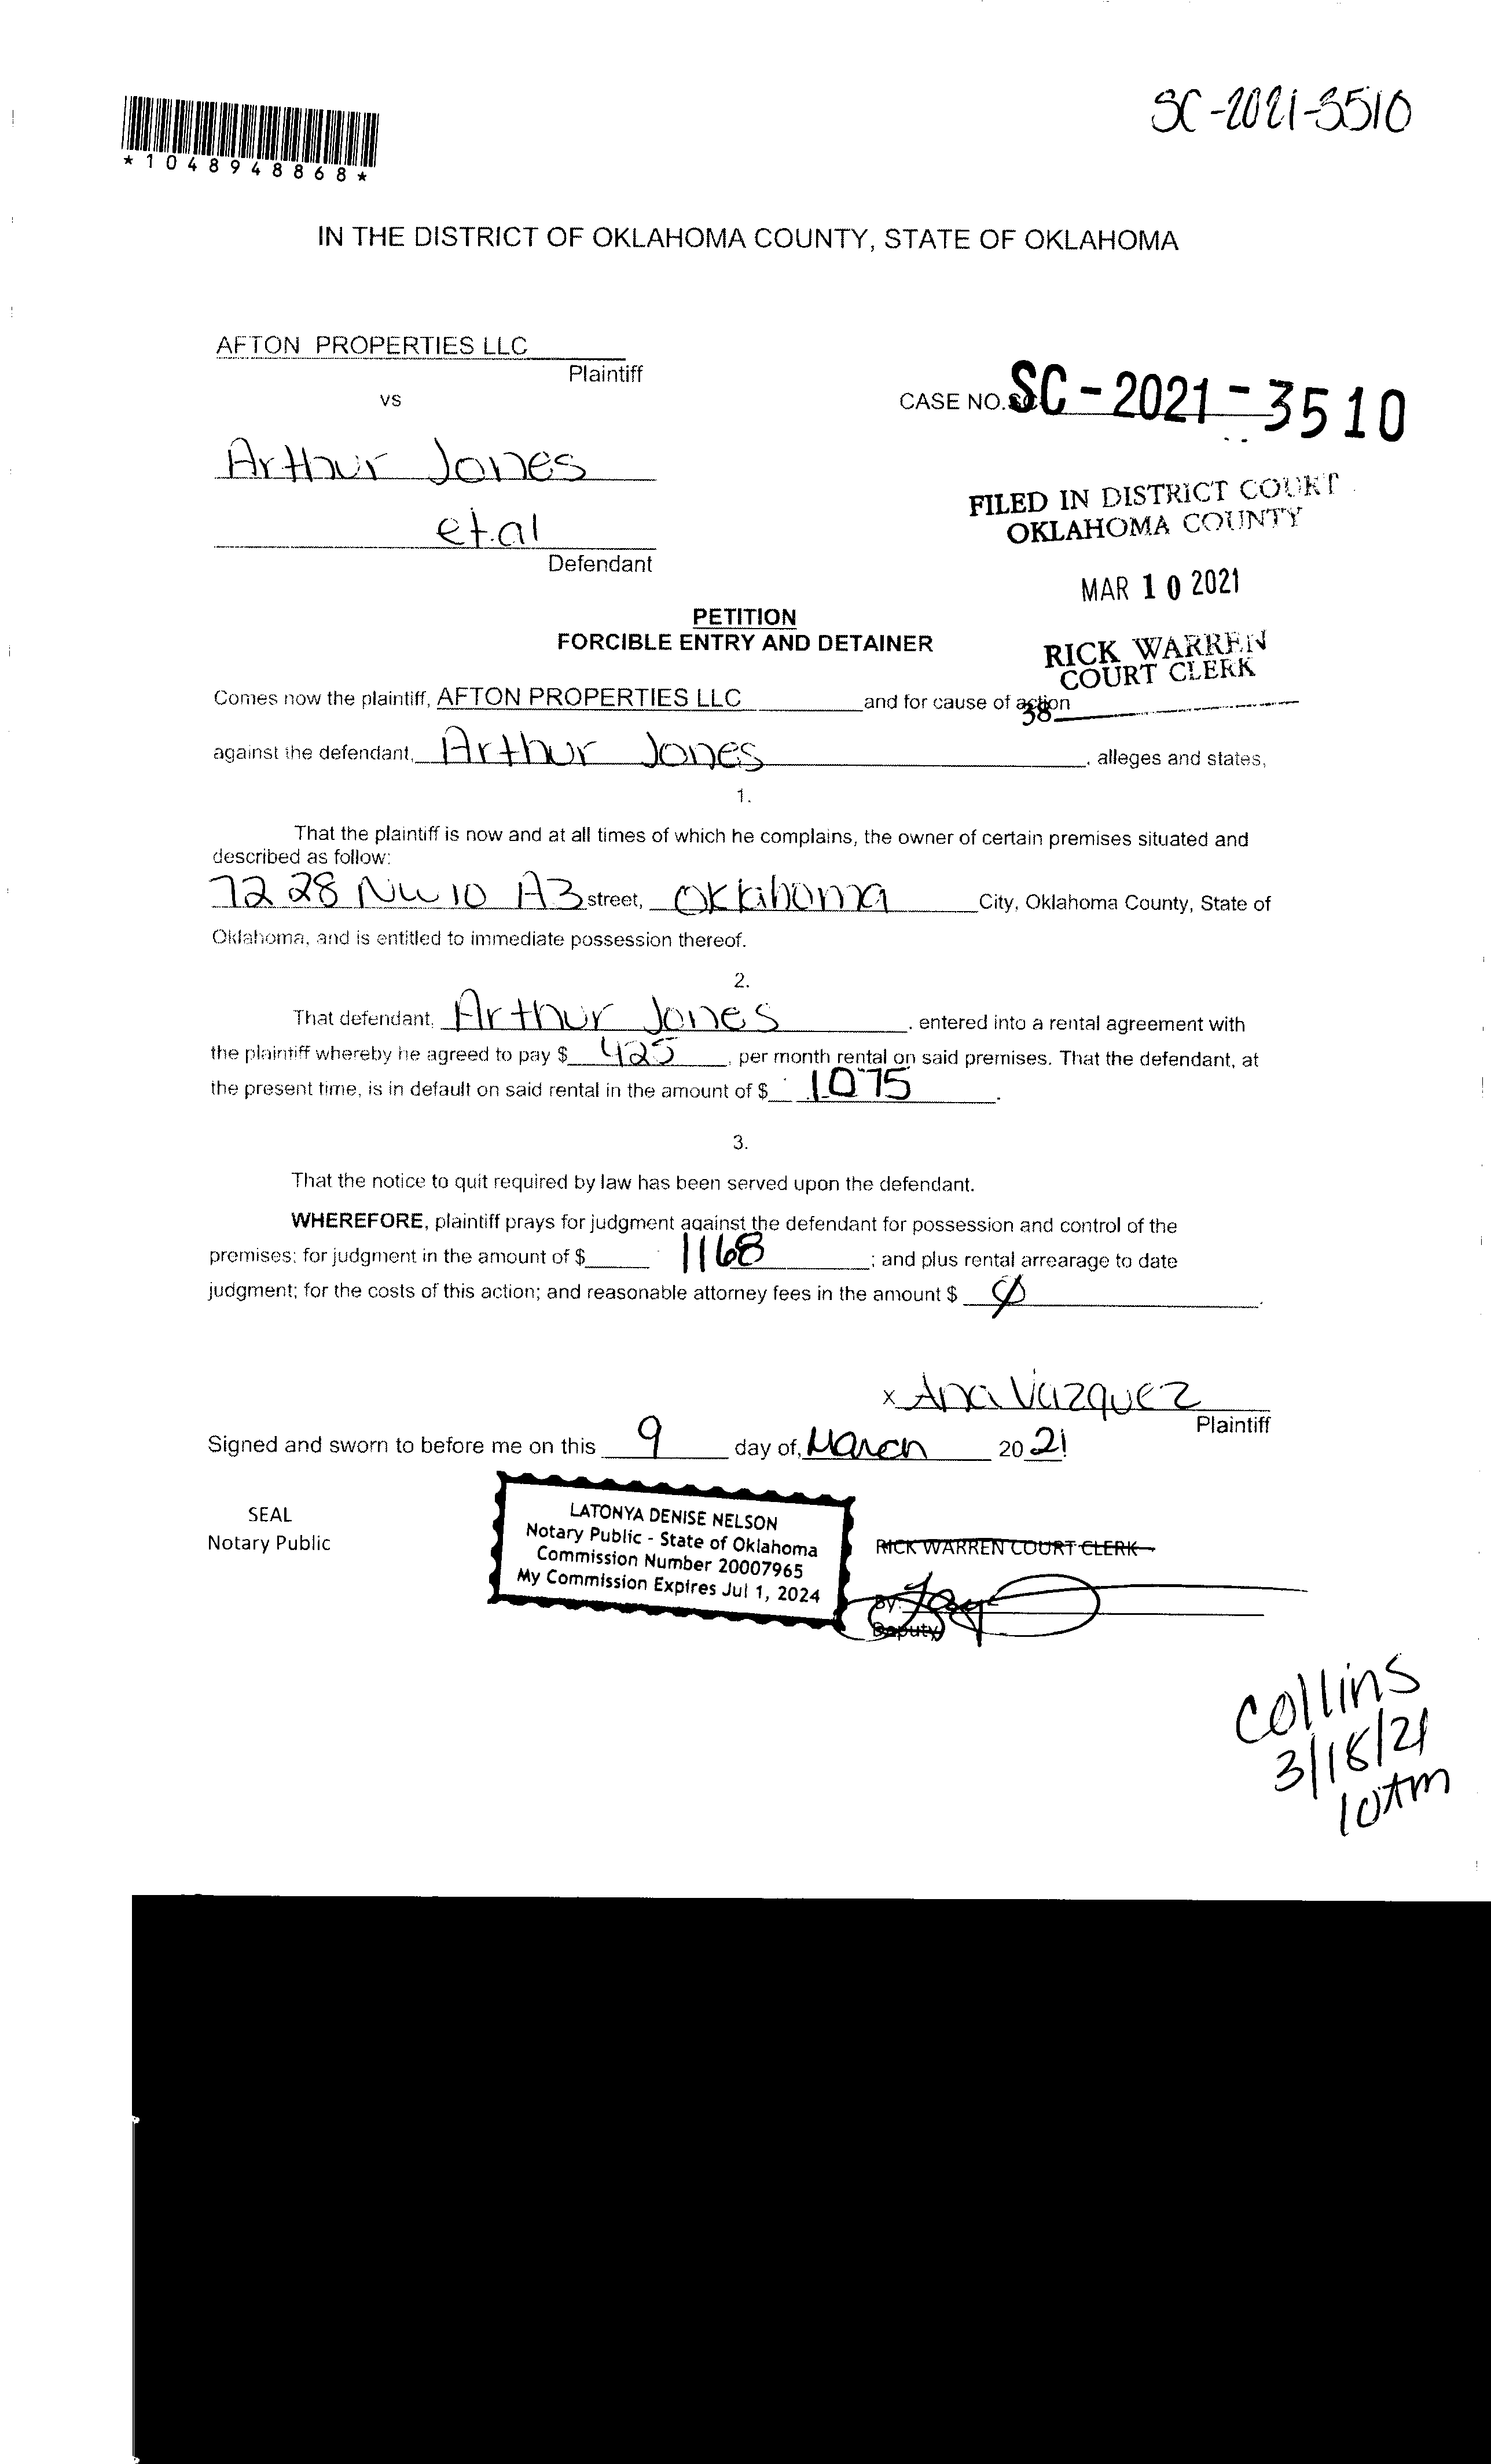 SC-2021-3510
*1048948868*
IN THE DISTRICT OF OKLAHOMA COUNTY, STATE OF OKLAHOMA
AFTON PROPERTIES LLC
Plaintiff
vs
CASE NO. SC-2021-3510
Arthur Jones
et.al
Defendant
FILED IN DISTRICT COURT
OKLAHOMA COUNTY
MAR 10 2021
RICK WARREN
COURT CLERK
38
PETITION
FORCIBLE ENTRY AND DETAINER
Comes now the plaintiff, AFTON PROPERTIES LLC and for cause of action
against the defendant, Arthur Jones, alleges and states,
1.
That the plaintiff is now and at all times of which he complains, the owner of certain premises situated and
described as follow:
7228 NW 10 A3 street, Oklahoma City, Oklahoma County, State of
Oklahoma, and is entitled to immediate possession thereof.
2.
That defendant, Arthur Jones, entered into a rental agreement with
the plaintiff whereby he agreed to pay $ 425, per month rental on said premises. That the defendant, at
the present time, is in default on said rental in the amount of $ 1075.
3.
That the notice to quit required by law has been served upon the defendant.
WHEREFORE, plaintiff prays for judgment against the defendant for possession and control of the
premises; for judgment in the amount of $ 1168; and plus rental arrearage to date
judgment; for the costs of this action; and reasonable attorney fees in the amount $ Ø.
x Ana Vazquez
Plaintiff
Signed and sworn to before me on this 9 day of, March 2021
SEAL
Notary Public
LATONYA DENISE NELSON
Notary Public - State of Oklahoma
Commission Number 20007965
My Commission Expires Jul 1, 2024
RICK WARREN COURT CLERK
By:
Deputy
Collins
3/18/21
10AM